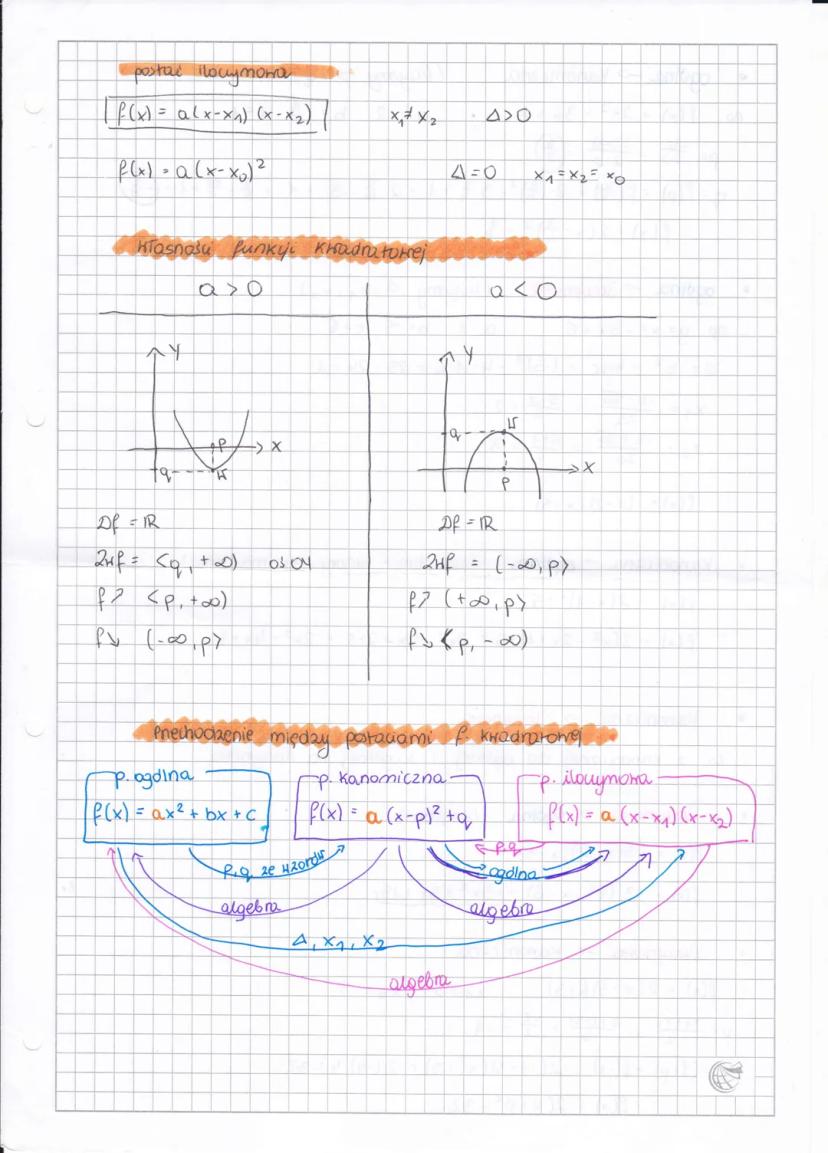 postać iloczynowa
f(x) = a(x-x₁)(x-x₂) x₁≠x₂ Δ>0
f(x) = a(x-x₀)² Δ=0 x₁=x₂=x₀
Własności funkcji kwadratowej
a > 0 a < 0
Y Y
q W
P X
q W X
P
Df = ℝ Df = ℝ
Zwf = <q, +∞) oś OY Zwf = (-∞, p>
f↗ <p, +∞) f↗ (+∞, p>
f↘ (-∞, p> f↘ <p, -∞)
Przechodzenie między postaciami f. kwadratowej
p. ogólna p. kanoniczna p. iloczynowa
f(x) = ax² + bx + c f(x) = a(x-p)² + q f(x) = a(x-x₁)(x-x₂)
p,q ze wzorów ogólna p,q
algebra algebra
Δ, x₁, x₂
algebra